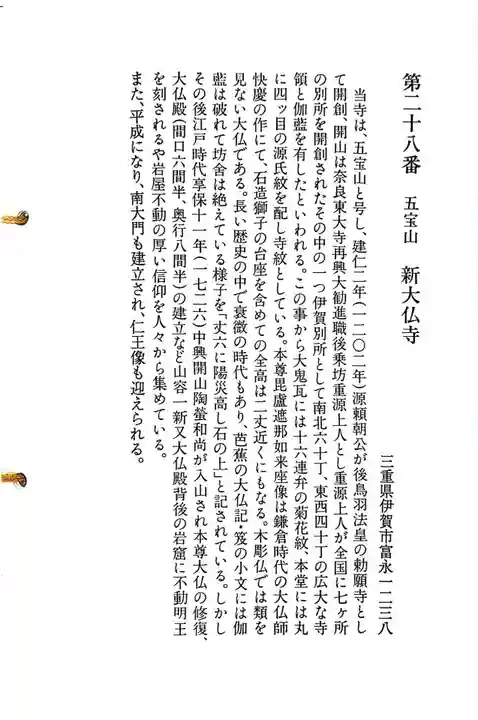 第二十八番　五宝山　新大仏寺
三重県伊賀市富永一二三八
当寺は、五宝山と号し、建仁二年(一二〇二年)源頼朝公が後鳥羽法皇の勅願寺とし
て開創、開山は奈良東大寺再興大勧進職後乗坊重源上人とし重源上人が全国に七ヶ所
の別所を開創されたその中の一つ伊賀別所として南北六十丁、東西四十丁の広大な寺
領と伽藍を有したといわれる。この事から大鬼瓦には十六連弁の菊花紋、本堂には丸
に四ッ目の源氏紋を配し寺紋としている。本尊毘盧遮那如来座像は鎌倉時代の大仏師
快慶の作にて、石造獅子の台座を含めての全高は二丈近くにもなる。木彫仏では類を
見ない大仏である。長い歴史の中で衰微の時代もあり、芭蕉の大仏記・笈の小文には伽
藍は破れて坊舎は絶えている様子を「丈六に陽災高し石の上」と記されている。しかし
その後江戸時代享保十一年(一七二六)中興開山陶螢和尚が入山され本尊大仏の修復、
大仏殿(間口六間半、奥行八間半)の建立など山容一新又大仏殿背後の岩窟に不動明王
を刻されるや岩屋不動の厚い信仰を人々から集めている。
また、平成になり、南大門も建立され、仁王像も迎えられる。